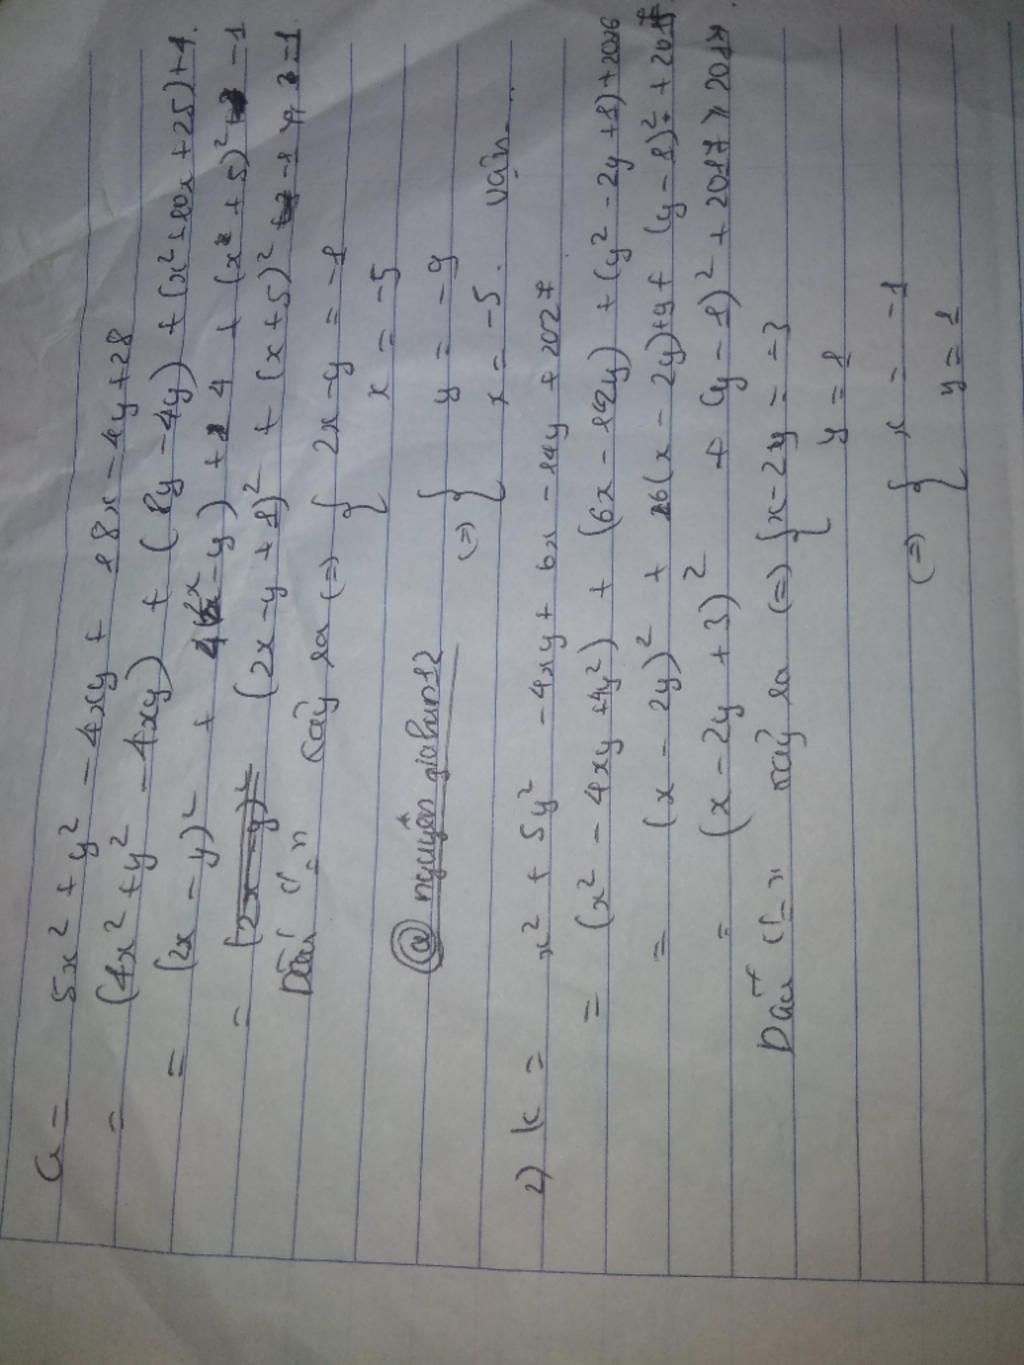 G = 5x² + y² - 4xy + 18x - 4y + 28
= (4x² + y² - 4xy) + (8y - 4y) + (x² + 10x + 25) + 1.
= (2x - y)² + 4(2x - y) + 4 + (x + 5)² - 1
= (2x - y + 1)² + (x + 5)² - 1 ≥ -1
Dấu "=" xảy ra (=) { 2x - y = -1
x = -5
@ nguyên giahun12
(=) { y = -9
x = -5. Vậy...
2) K = x² + 5y² - 4xy + 6x - 14y + 2027
= (x² - 4xy + 4y²) + (6x - 12y) + (y² - 2y + 1) + 2026
= (x - 2y)² + 6(x - 2y) + 9 + (y - 1)² + 2017
= (x - 2y + 3)² + (y - 1)² + 2017 ≥ 2017.
Dấu "=" xảy ra (=) { x - 2y = -3
y = 1
(=) { x = -1
y = 1